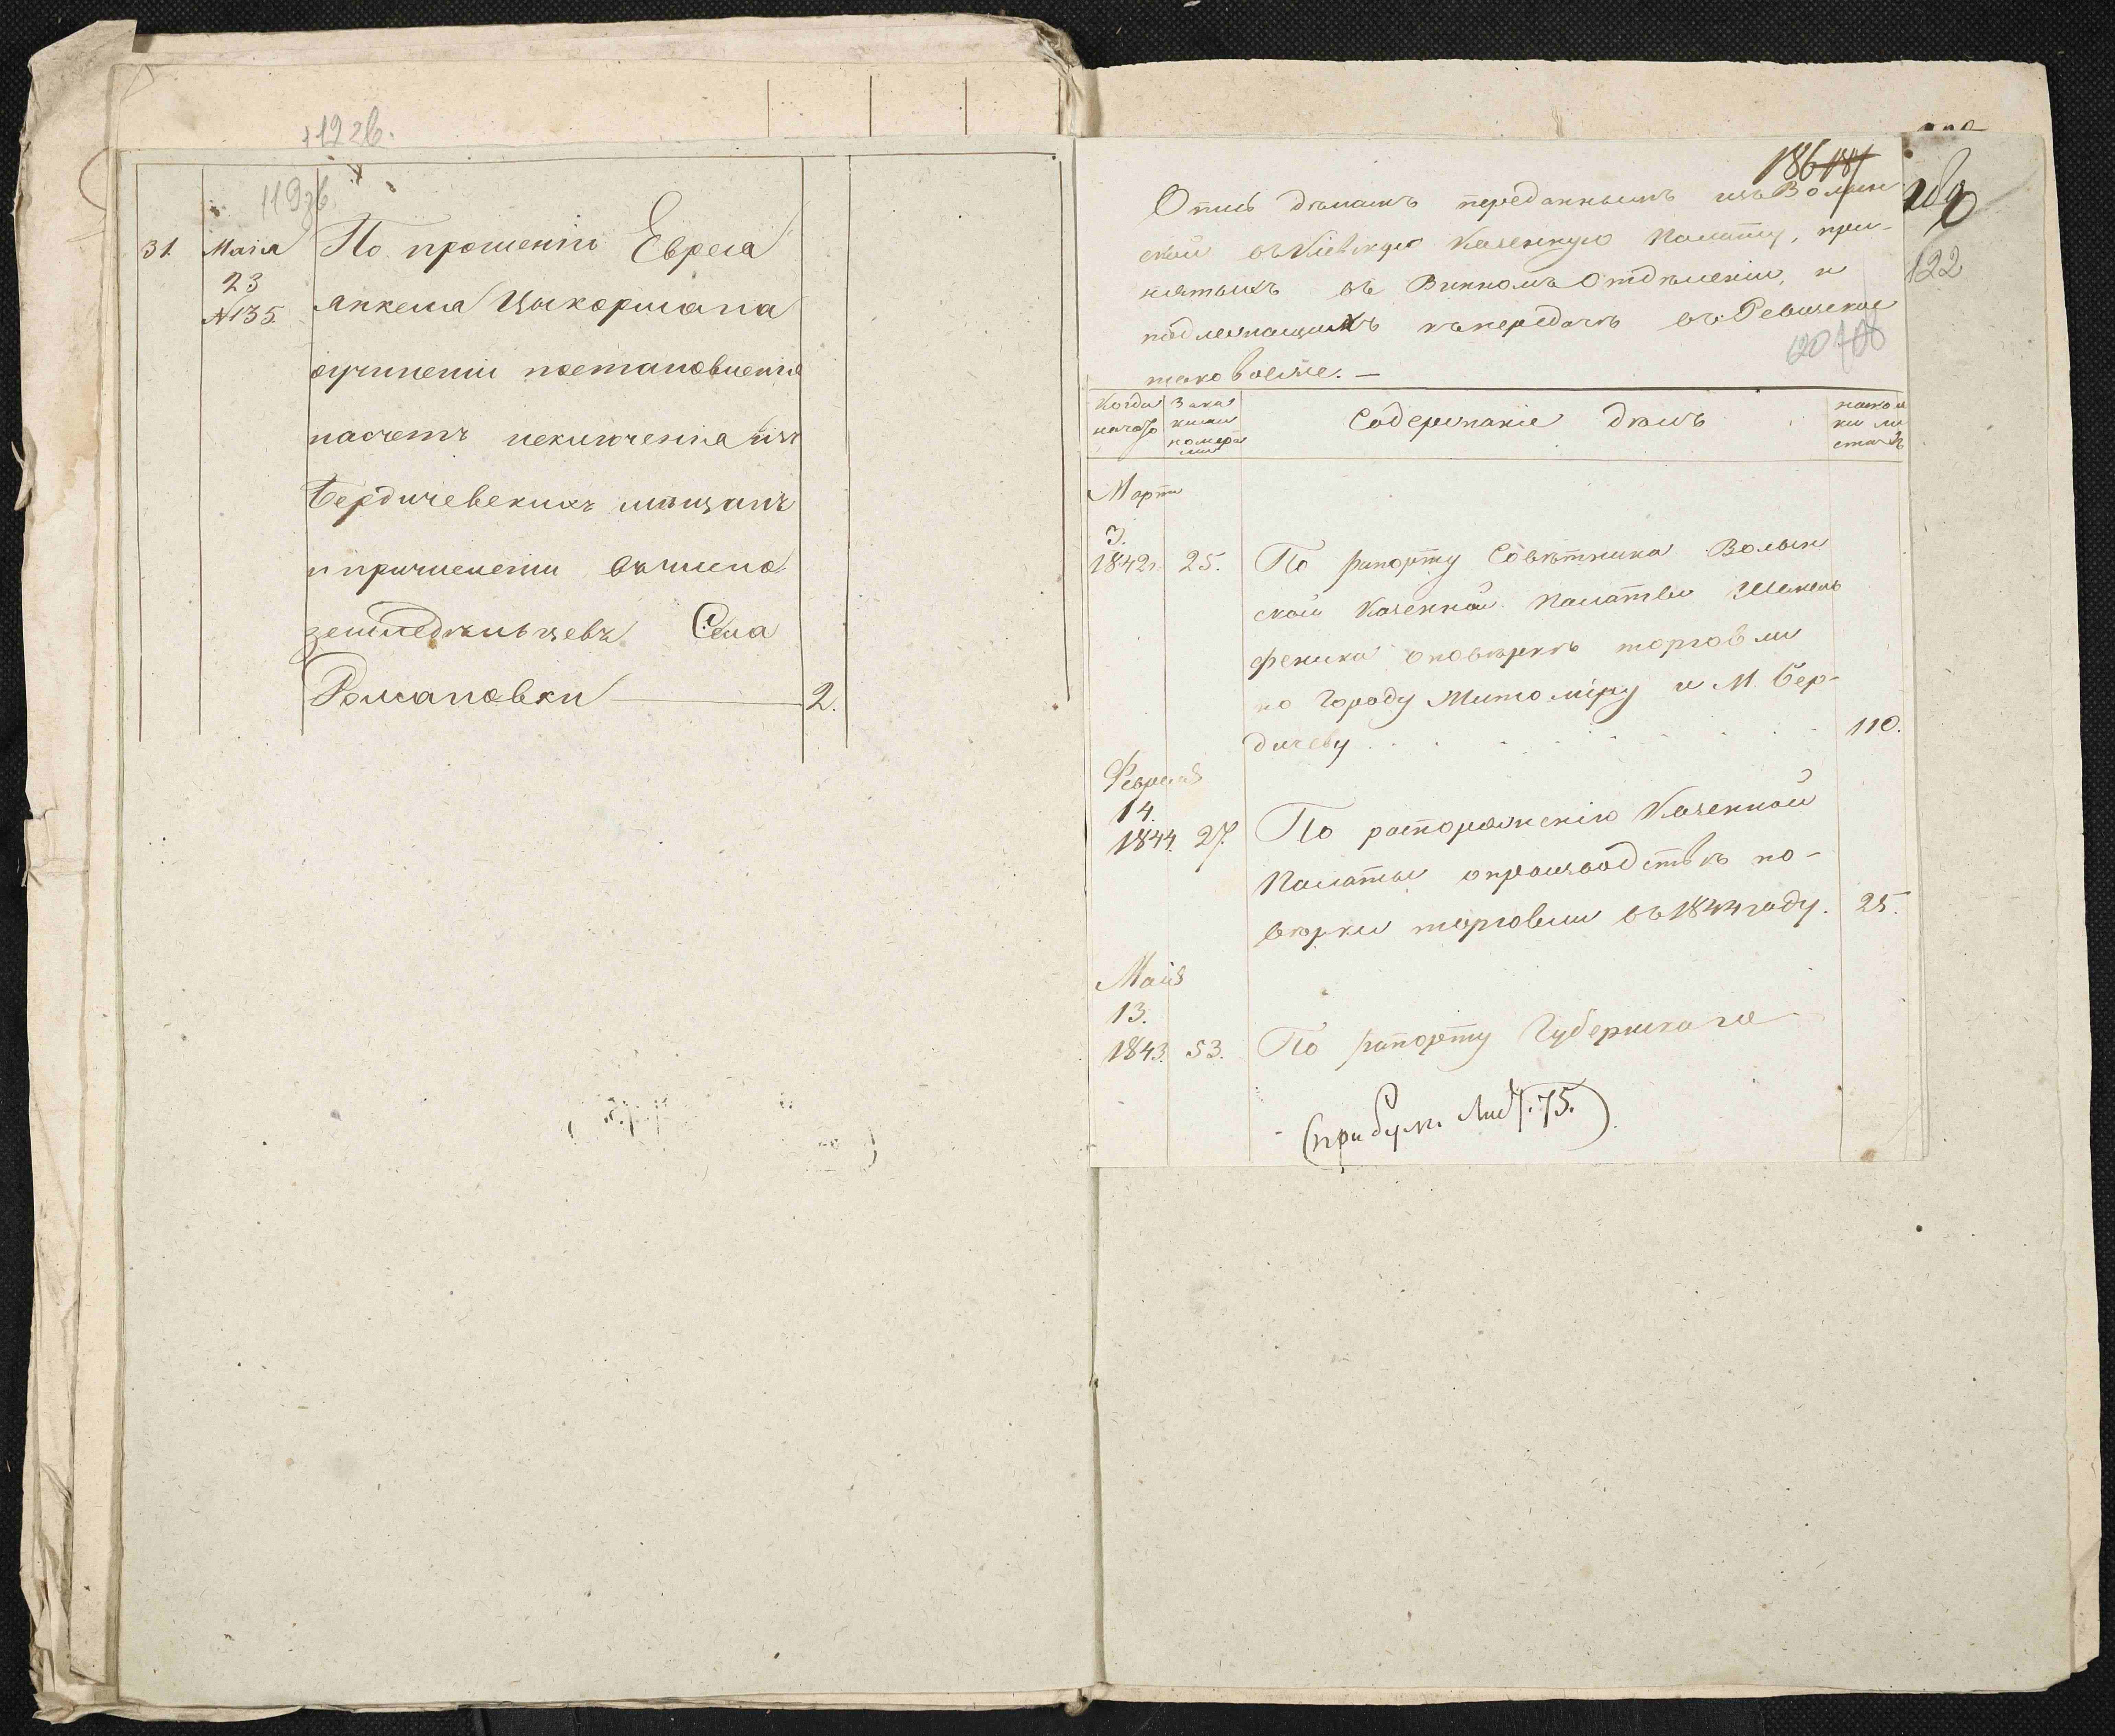 119зв.
31. Маія По прошенію Еврея
23
№135. Янкеля Цикормана
оучиненіи постановленія
насчетъ исключенія изъ
Бердичевскихъ мѣщанъ
и причисленіи въ число
земледѣльцевъ Села
Романовки 2.
186
122
Опись дѣламъ переданнымъ изъ Волын
ской въ Кіевскую Казенную Палату, при-
нятыхъ въ Винномъ Отдѣленіи, и
подлежащихъ къ передачѣ въ Ревизское
таковое же. —
120
Когда начато За какими номерами Содержаніе дѣлъ на сколькихъ листахъ
Марта
3.
1842г. 25. По рапорту Совѣтника Волын
ской Казенной Палаты
о повѣркѣ торговли
по Городу Житоміру и М. Бер-
дичеву . . . . . . . . 110.
Февраля
14.
1844. 27. По распоряженію Казенной
Палаты опроизводствѣ по-
вѣрки торговли въ 1844 году. 25.
Маія
13.
1843. 53. По рапорту Губернскаго